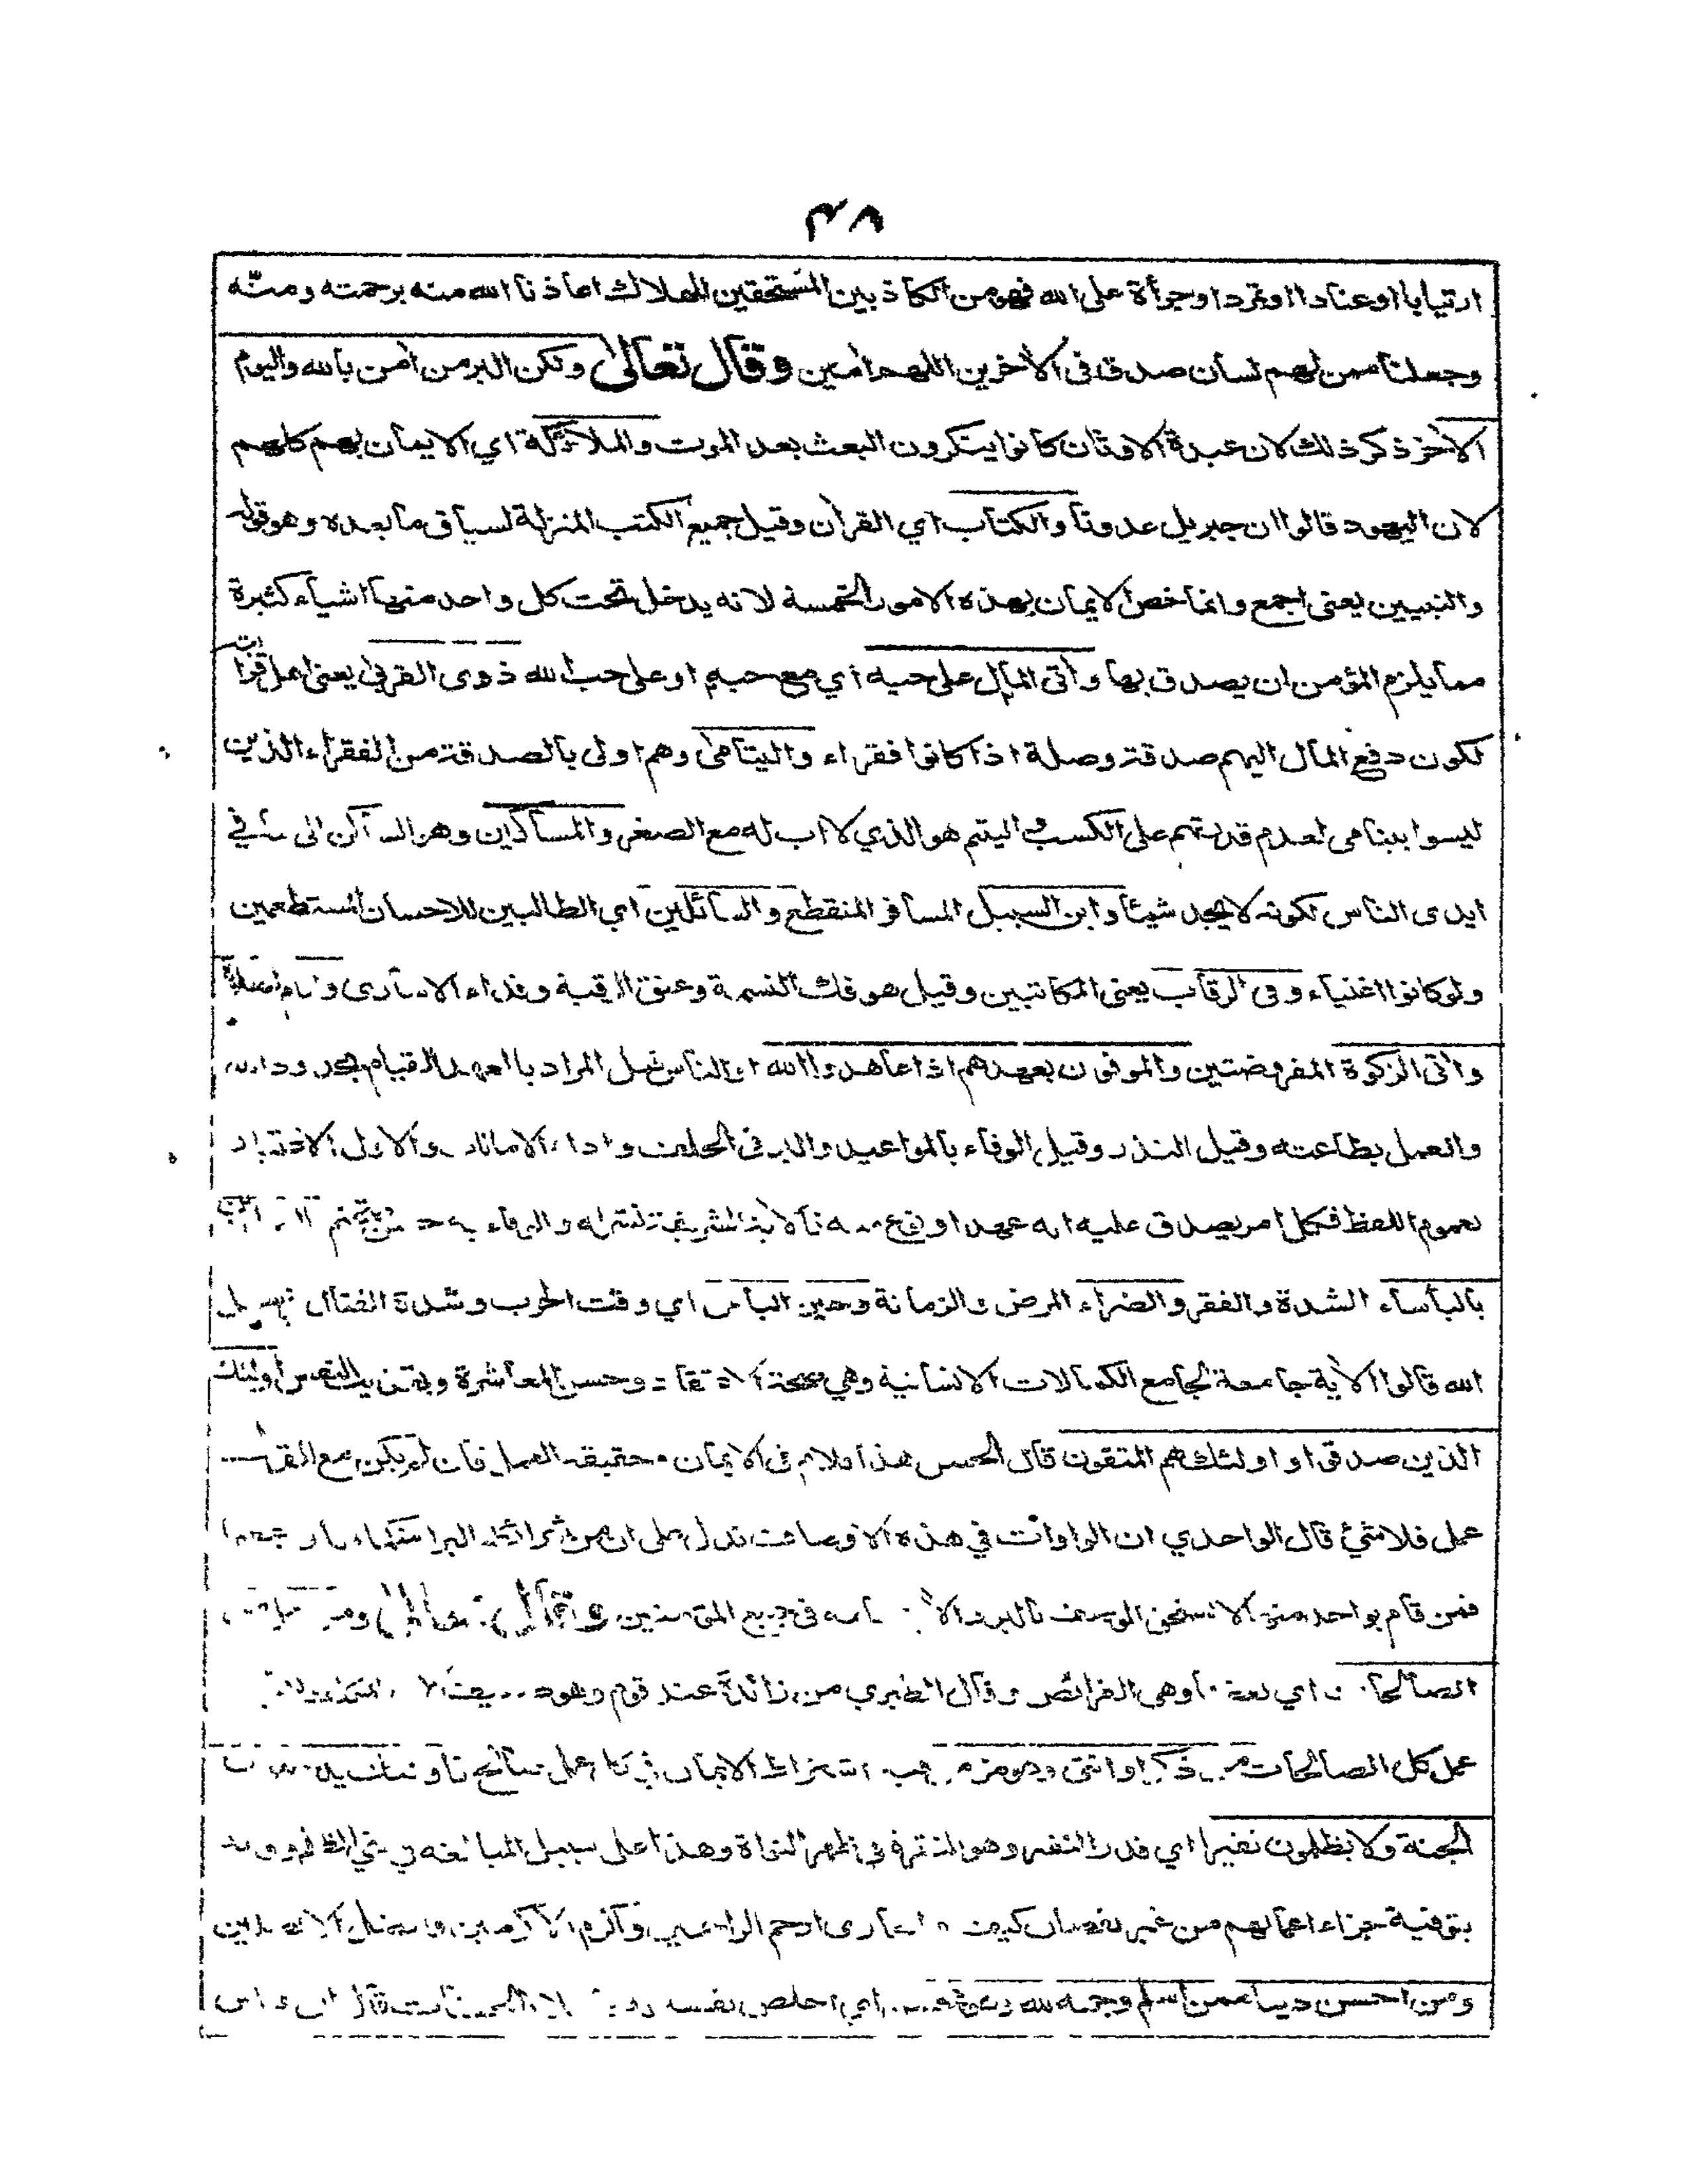 ٣٨
ارتيابا اوعنادا اوتمردا وجرأة على الله فهو من الكاذبين المستحقين للهلاك اعاذنا الله منه برحمته ومنّه
وجعلنا ممن لهم لسان صدق فى الاخرين اللهم امين وقال تعالى ولكن البر من امن بالله واليوم
الاخر ذكر ذلك لان عبدة الاوثان كانوا ينكرون البعث بعد الموت والملائكة اي الايمان بهم كلهم
لان اليهود قالوا ان جبريل عدونا والكتاب اي القران وقيل جميع الكتب المنزلة لسياق ما بعده وهو قوله
والنبيين يعنى اجمع وانما خص الايمان بهذه الامور الخمسة لانه يدخل تحت كل واحد منها اشياء كثيرة
مما يلزم المؤمن ان يصدق بها واتى المال على حبه اي مع حبه او على حب الله ذوى القربى يعنى اهل قرابات
لكون دفع المال اليهم صدقة وصلة اذا كانوا فقراء واليتامى وهم اولى بالصدقة من الفقراء الذين
ليسوا بيتامى لعدم قدرتهم على الكسب واليتيم هو الذي لا اب له مع الصغر والمساكين وهو الساكن الى ما في
ايدى الناس لكونه لا يجد شيئا وابن السبيل المسافر المنقطع والسائلين اي الطالبين للاحسان المستطعمين
ولو كانوا اغنياء وفى الرقاب يعنى المكاتبين وقيل هو فك النسمة وعتق الرقبة وفداء الاسارى واقام الصلاة
واتى الزكوة المفروضتين والموفون بعهدهم اذا عاهدوا الله او الناس قيل المراد بالعهد القيام بحدود الله
والعمل بطاعته وقيل النذر وقيل الوفاء بالمواعيد والبر فى الحلف واداء الامانات والاول
لعموم اللفظ فكل امر يصدق عليه انه عهد الاية الشريفة والوفاء به
بالبأساء الشدة والفقر والضراء المرض والزمانة وحين البأس اي وقت الحرب وشدة القتال
الله قالوا الاية جامعة لجامع الكمالات الانسانية وهي صحة الاعتقاد وحسن المعاشرة وتهذيب النفس اولئك
الذين صدقوا واولئك هم المتقون قال الحسن هذا كلام فى الايمان وحقيقته العمل فان لم يكن مع القول
عمل فلا شئ قال الواحدي ان الواوات في هذه الاوصاف تدل على ان من شرائط البر استكمالها وجمعها
فمن قام بواحد منها لا يستحق الوصف بالبر فى جميع المؤمنين وقال تعالى ومن
الصالحات اي وهى الفرائض وقال الطبري من زائدة عند قوم وهو
عمل كل الصالحات من ذكر او انثى وهو مؤمن اشتراط الايمان
الجنة ولا يظلمون نقيرا اي قدر النقير وهو النقرة فى ظهر النواة وهذا على سبيل المبالغة في نفي الظلم
بتوفية جزاء اعمالهم من غير نقصان كيف ارحم الراحمين واكرم الاكرمين
ومن احسن دينا ممن اسلم وجهه لله اي اخلص نفسه